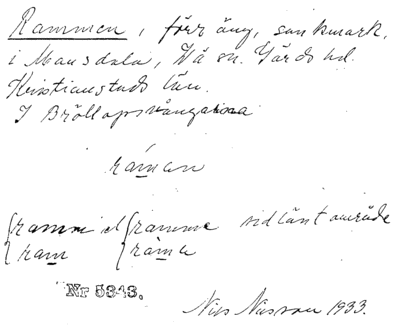 Rammen, förr äng, sankmark,
i Mansdala, Vä sn. Gärds hd.
Kristianstads län.
I Bröllopsvångarna
råmen
ramm el ramme sidlänt område
ram råme
Nr 5343.
Nils Nilsson 1933.